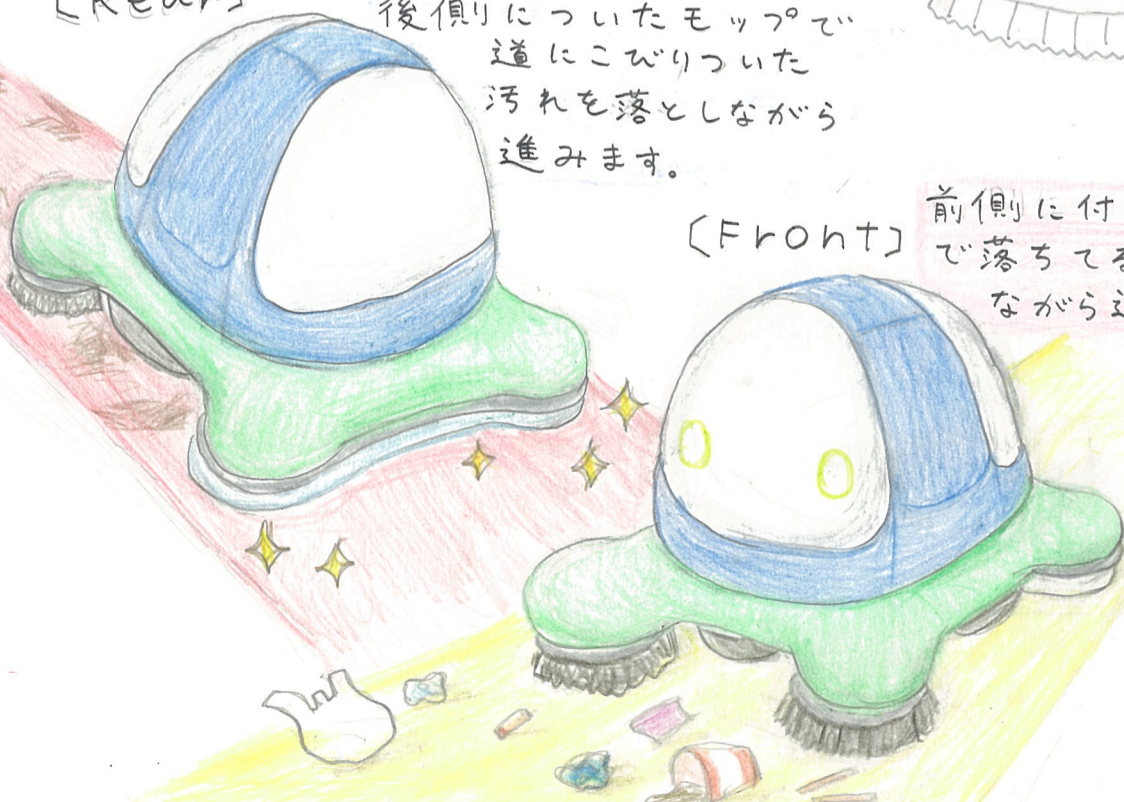 [Rear]
後側についたモップで
道にこびりついた
汚れを落としながら
進みます。
[Front]
前側に付
で落ちてる
ながら